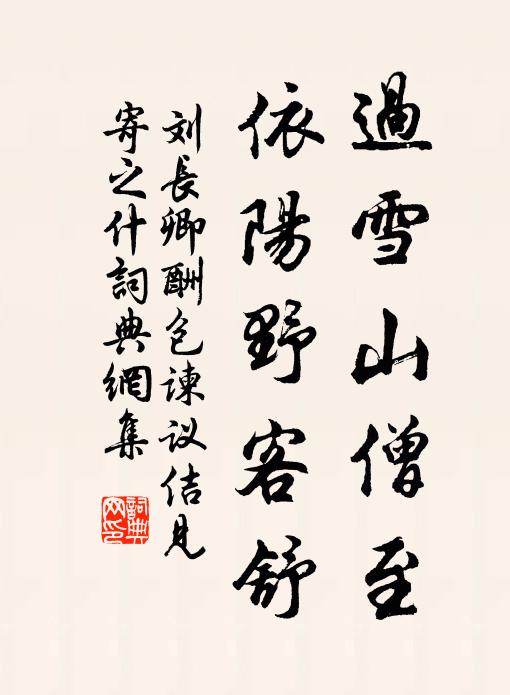 過雪山僧至
依陽野客舒
刘長卿酬包諫议佶見
寄之什詞典網集
詞典网印